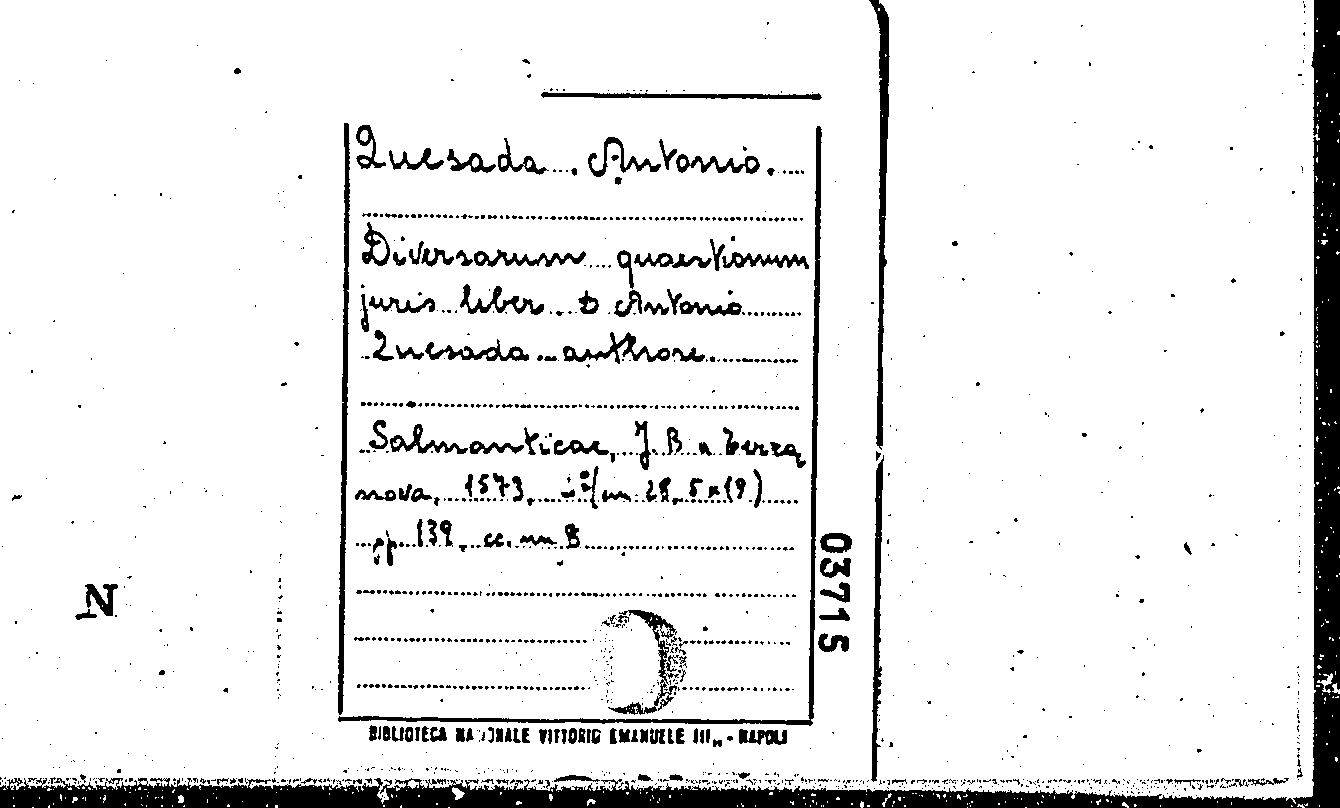 Quesada Antonio.
Diversarum quaestionum
juris liber. D Antonio
Quesada authore.
Salmanticae, J. B. a Terra
nova, 1573, in 2°(mm 28,5x19)
pp. 139, cc. nn 8
03715
N
BIBLIOTECA NAZIONALE VITTORIO EMANUELE III, - NAPOLI